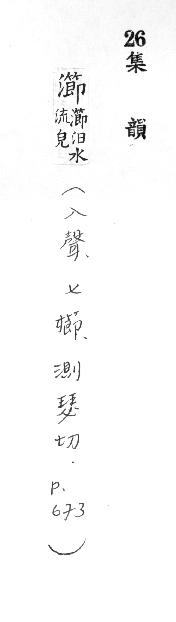 26集韻
㶍
㶍汩水
流皃
(入聲、七櫛、測瑟切. p.673)